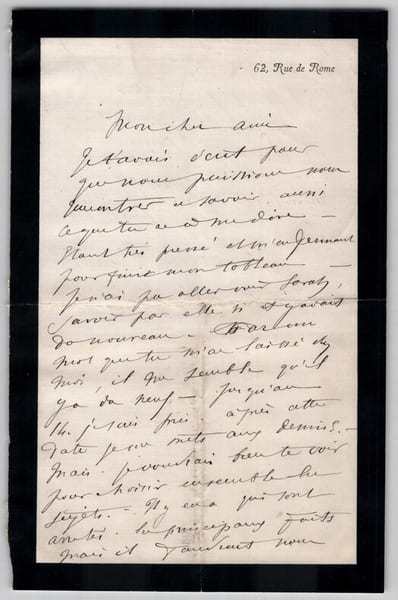 62, Rue de Rome
Mon cher ami
Je t'avais écrit pour
que nous puissions nous
rencontrer et savoir aussi
ce que tu as à me dire —
Étant très pressé et m'en
pour finir mon tableau
je n'ai pu aller voir Sarah,
savoir par elle s'il y avait
du nouveau — Par un
mot que tu m'as laissé chez
moi, il me semble qu'il
y a du neuf — jusqu'au
14. je suis pris. après cette
date je me mets aux dessins. —
Mais je voudrais bien te voir
pour choisir ensemble les
sujets. — Il y en a qui sont
arrêtés. les principaux faits
mais il faudrait nous